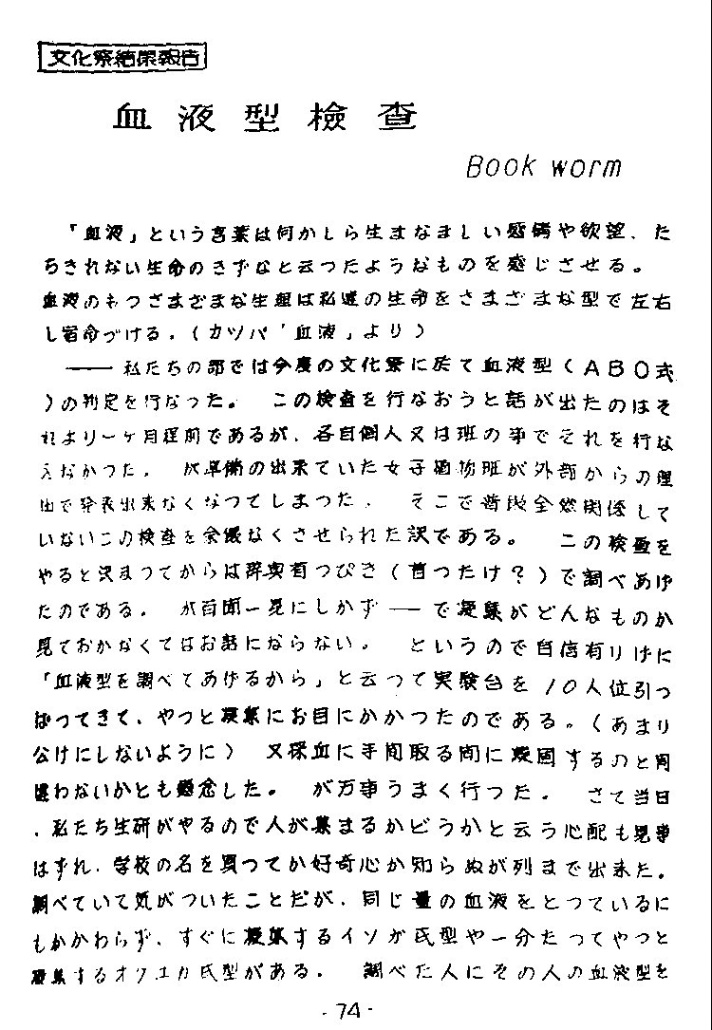 文化祭結果報告
血液型検査
Book worm
「血液」という言葉は何かしら生まなましい感情や欲望、た
ちきれない生命のきずなと云つたようなものを感じさせる。
血液のもつさまざまな生理は私達の生命をさまざまな型で左右
し宿命づける。(カツパ「血液」より)
── 私たちの部では今度の文化祭に於て血液型(ABO式
)の判定を行なった。 この検査を行なおうと話が出たのはそ
れより一ケ月程前であるが、各自個人又は班の事でそれを行な
えなかつた。 が準備の出来ていた女子植物班が外部からの理
由で発表出来なくなつてしまつた。 そこで普段全然関係して
いないこの検査を余儀なくさせられた訳である。 この検査を
やると決まつてからは辞典首つぴき(首つたけ?)で調べあげ
たのである。 が百聞一見にしかず──で凝集がどんなものか
見ておかなくてはお話にならない。 というので自信有りげに
「血液型を調べてあげるから」と云つて実験台を10人位引つ
ぱつてきて、やつと凝集にお目にかかつたのである。(あまり
公けにしないように) 又採血に手間取る間に凝固するのと間
違わないかとも懸念した。 が万事うまく行つた。 さて当日
、私たち生研がやるので人が集まるかどうかと云う心配も見事
はずれ、学校の名を買つてか好奇心か知らぬが列まで出来た。
調べていて気がついたことだが、同じ量の血液をとつているに
もかかわらず、すぐに凝集するイソガ氏型や一分たつてやつと
凝集するオクユカ氏型がある。 調べた人にその人の血液型を
-74-